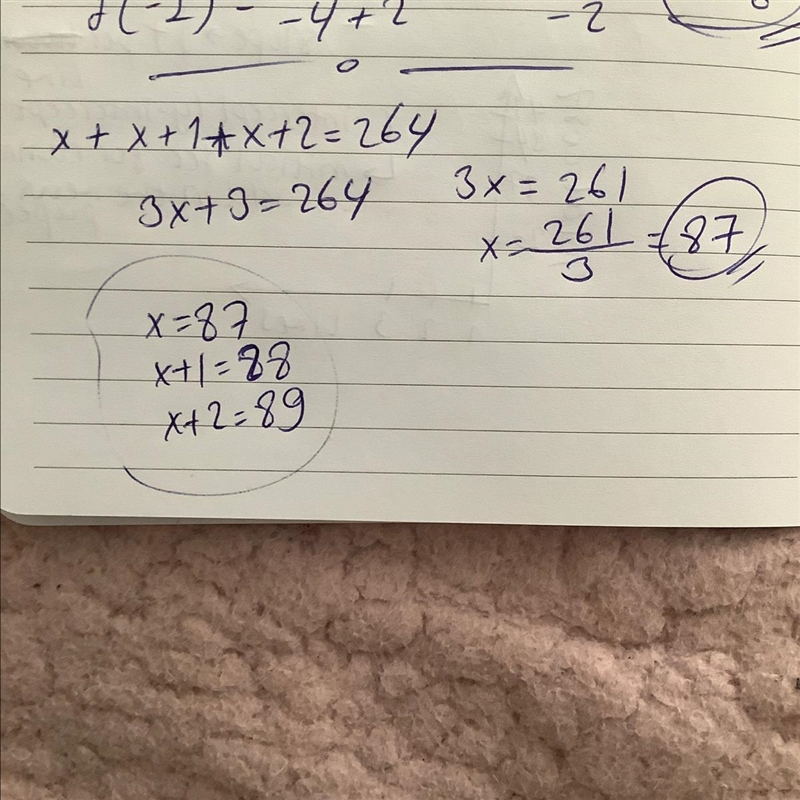 -4+2 -2
x + x + 1 + x + 2 = 264
3x + 3 = 264
3x = 261
x = 261/3 = 87
x = 87
x + 1 = 88
x + 2 = 89